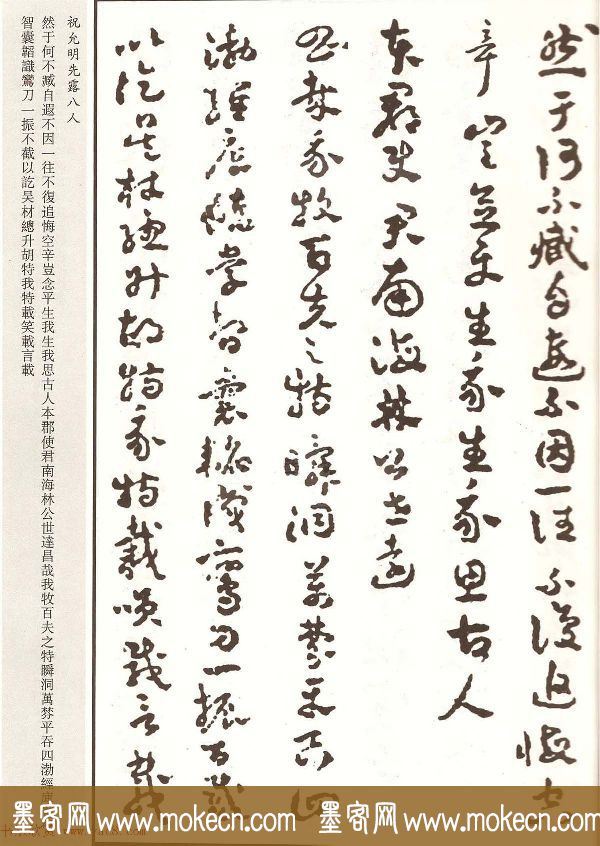 祝允明先露八人
然于何不臧自遐不因一往不復追悔空辛豈念平生我生我思古人本郡使君南海林公世達昌哉我牧百夫之特瞬洞萬棼平吞四渤經
智囊韜識鸞刀一振不截以訖吴材總升胡特我特載笑載言載
然于何不臧自遐不因一往不復追悔空
辛豈念平生我生我思古人
本郡使君南海林公世達
昌哉我牧百夫之特瞬洞萬棼平吞四
渤經智囊韜識鸞刀一振不截
以訖吴材總升胡特我特載笑載言載
墨客网 www.mokecn.com 墨客网 www.mokecn.com